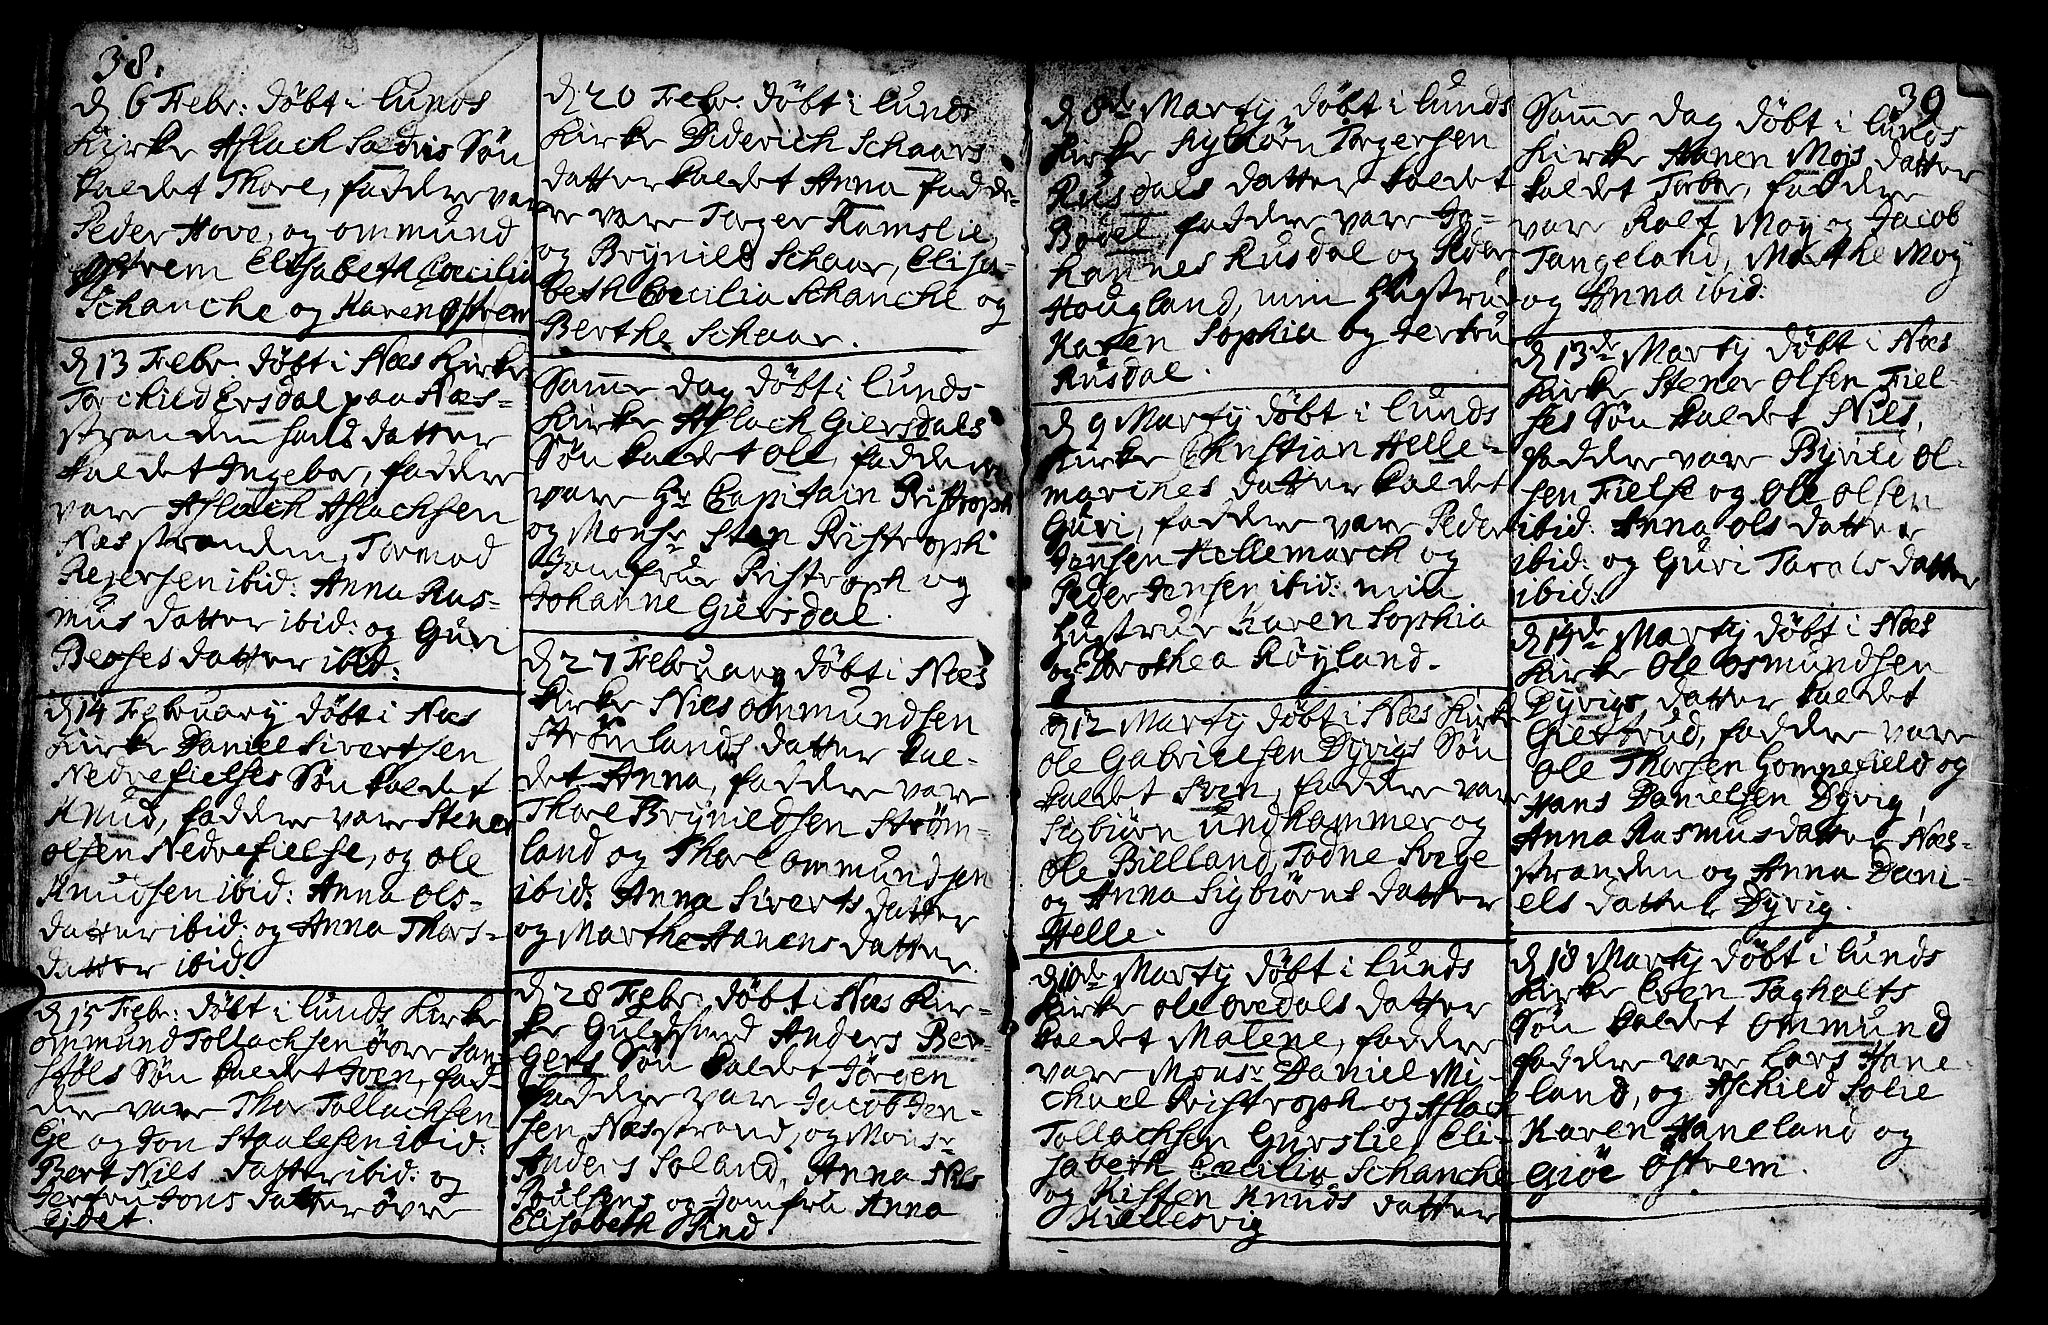 38.
d 6 Febr: døbt i Lunds
Kirke Aslach Saldris Søn
kaldet Thore, faddre vare
Peder Hove, og Ommund
Østrem Elisabeth Cœcilia
Schanche og Karen Østrem
d 13 Febr: døbt i Næs Kirke
Torchild Ersdal paa Næs-
stranden hans datter
kaldet Ingebor, faddre
vare Aslach Aslachsen
Næsstranden, Tormod
Rejersen ibid: Anna Ras-
mus datter ibid: og Guri
datter ibid:
d 14 February døbt i Næs
Kirke Daniel Sivertsen
Nedrefielses Søn kaldet
Knud, faddre vare Stener
Olsen Nedrefielse, og Ole
Knudsen ibid: Anna Ols-
datter ibid: og Anna Thors-
datter ibid:
d 15 Febr: døbt i Lunds Kirke
Ommund Tollachsen øvre
Søn kaldet Sven, fad-
dre vare Thor Tollachsen
Eie og Jon Staalesen ibid:
Bert Niels datter ibid: og
Jertru Jons datter øvre
Eidet.
d 20 Febr: døbt i Lunds
Kirke Diderich Schaars
datter kaldet Anna fadde-
re vare Torger Ramslie,
og Brynild Schaar, Elisa-
beth Cœcilia Schanche og
Berthe Schaar.
Samme dag døbt i Lunds
Kirke Aslach Giersdals
Søn kaldet Ole, faddere
vare Hr Capitain Ristroph
og Monsr Sten Ristroph
Jomfrue Ristroph og
Johanne Giersdal.
d 27 February døbt i Næs
Kirke Niels Ommundsen
Strømlands datter kal-
det Anna, faddre vare
Thore Brynildsen Strøm-
land og Thore Ommundsen
ibid: Anna Siverts datter
og Marthe Hanens datter.
d 28 Febr: døbt i Næs Kir-
ke Guldsmed Anders Ber-
gers Søn kaldet Jørgen
faddre vare Jacob Jen-
sen Næsstrand, og Monsr
Anders Soland, Anna Niels
Poulsens og Jomfru Anna
Elisabeth Kind.
d 8de Martij døbt i Lunds
Kirke Sigbiørn Torgersen
Rusdals datter kaldet
Bodel, faddre vare Jo-
hannes Rusdal og Peder
Hougland, min Hustrue
Karen Sophia og Jertru
Rusdal.
d 9 Martij døbt i Lunds
Kirke Christian Helle-
marches datter kaldet
Guri, faddre vare Peder
Jensen Hellemarch og
Peder Jensen ibid: min
Hustrue Karen Sophia
og Dorothea Røyland.
d 12 Martij døbt i Næs Kirke
Ole Gabrielsen Dyvigs Søn
kaldet Sven, faddre vare
Sigbiørn Undhammer og
Ole Bielland, Todne Sirge
og Anna Sigbiørns datter
Helle.
d 10de Martij døbt i Lunds
Kirke Ole Ovedals datter
kaldet Malene, faddre
vare Monsr Daniel Mi-
chael Ristroph og Aslac
Tollachsen Gurslie, Eli-
sabeth Cæcilia Schanche
og Kisten Knuds datter
Kiellesvig
39
Samme dag døbt i Lunds
Kirke Hanen Mojs datter
kaldet Torbor, faddre
vare Rolf Moy og Jacob
Tangeland, Marthe Moy
og Anna ibid:
d 13de Martij døbt i Næs
Kirke Stener Olsen Fiel-
ses Søn kaldet Niels,
faddre vare Byrild Ol-
sen Fielse og Ole Olsen
ibid: Anna Ols datter
ibid: og Guri Tarals datter
ibid:
d 14de Martij døbt i Næs
Kirke Ole Osmundsen
Dyvigs datter kaldet
Giertrud, faddre vare
Ole Thorsen Gompefield og
Hans Danielsen Dyvig,
Anna Rasmusdatter Næs-
stranden og Anna Dani-
els datter Dyvig.
d 18 Martij døbt i Lunds
Kirke Even Tagholts
Søn kaldet Ommund
faddre vare Lars Hane-
land, og Aschild Solie
Karen Haneland og
Giøe Østrem.